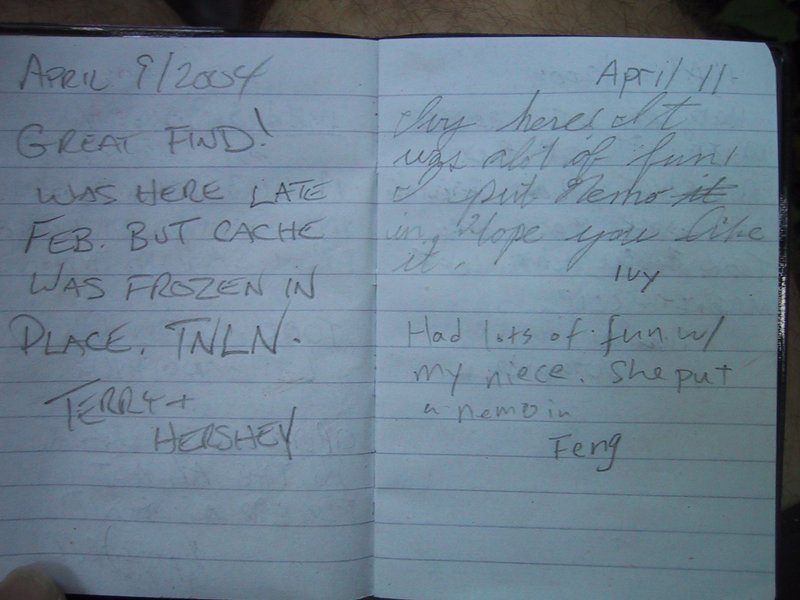 APRIL 9/2004
GREAT FIND!
WAS HERE LATE
FEB. BUT CACHE
WAS FROZEN IN
PLACE. TNLN.
TERRY +
HERSHEY
April 11.
Ivy here! It
was alot of fun!
I put Nemo it
in. Hope you like
it.
Ivy
Had lots of fun w/
my niece. She put
a nemo in
Feng